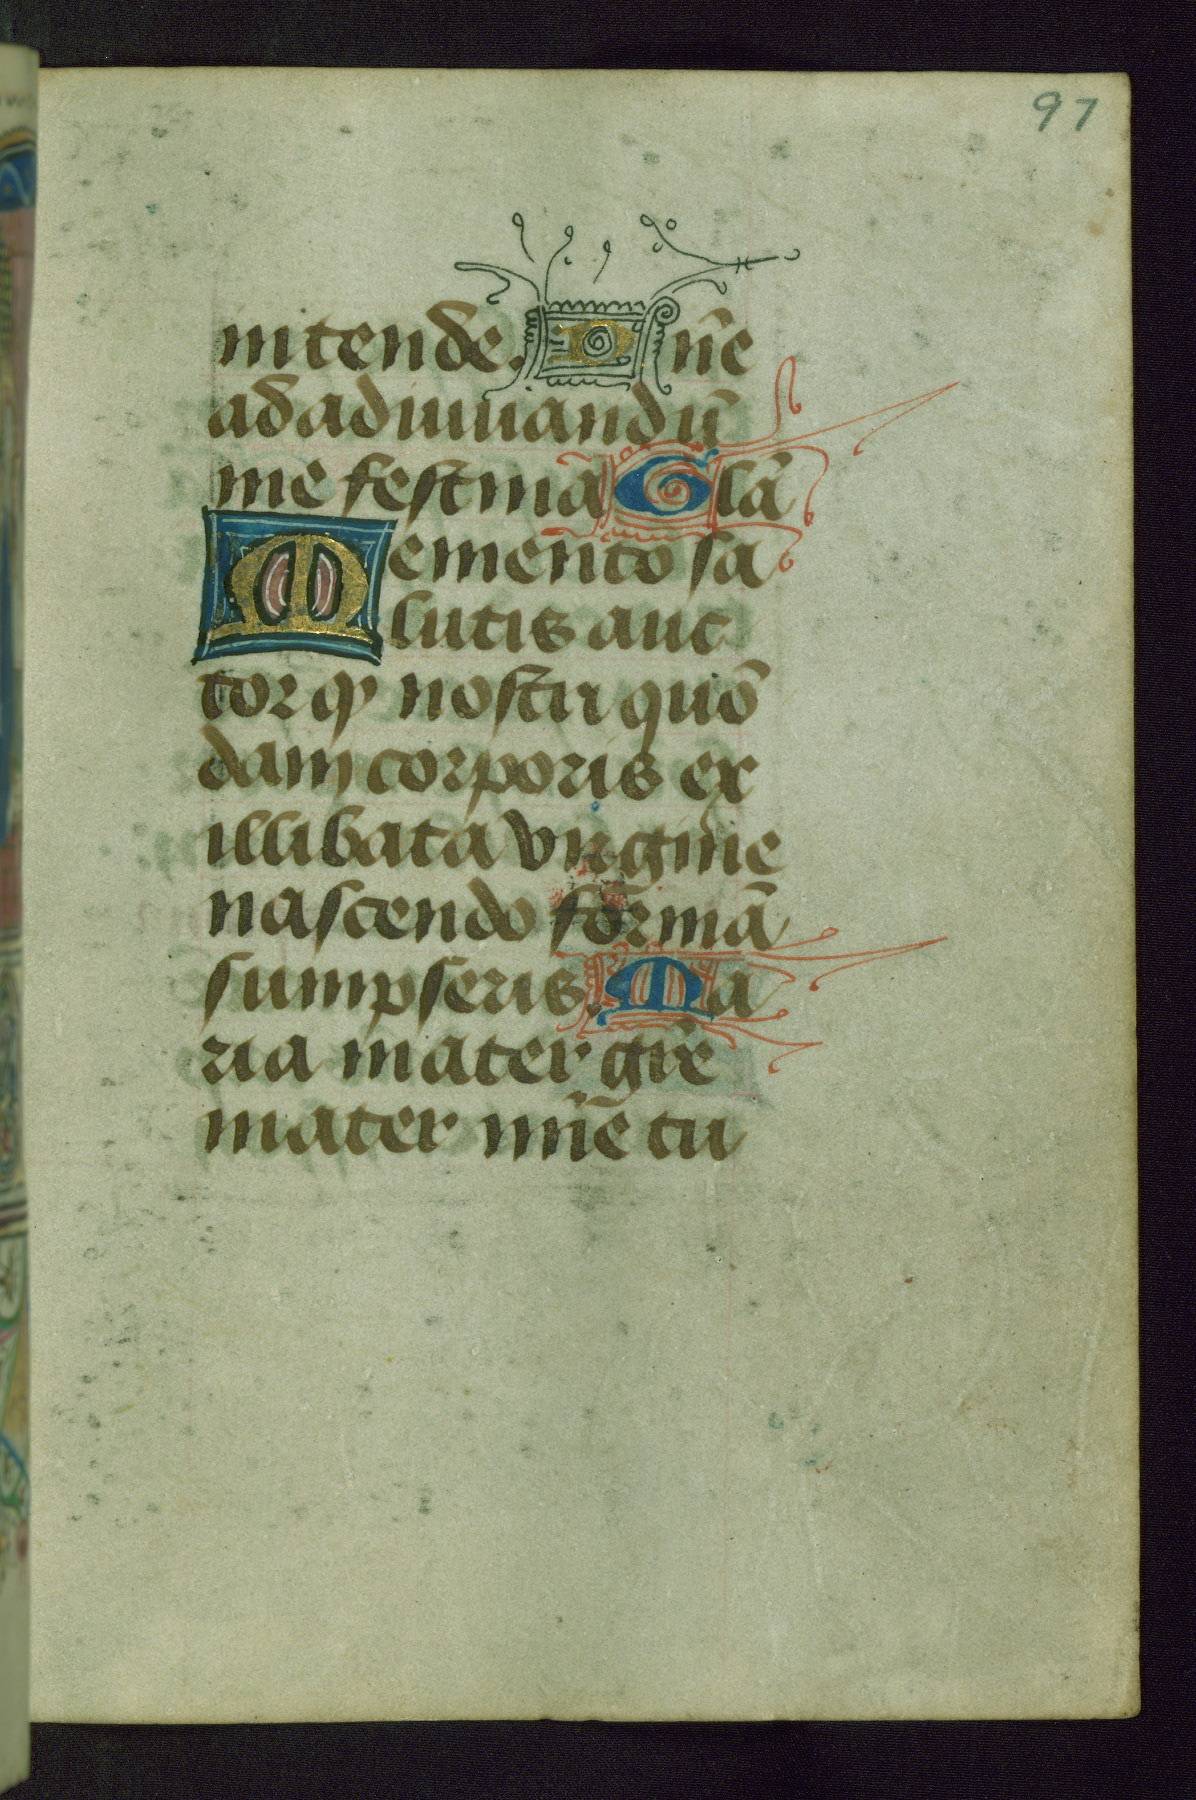 97
intende. Dn̄e
ad adiuuandū
me festinā Glā
Memento sa
lutis auc
tor qꝫ nostri quō
dam corporis ex
illibata virgine
nascendo formā
sumpseris. Ma
ria mater grē
mater mīe tu